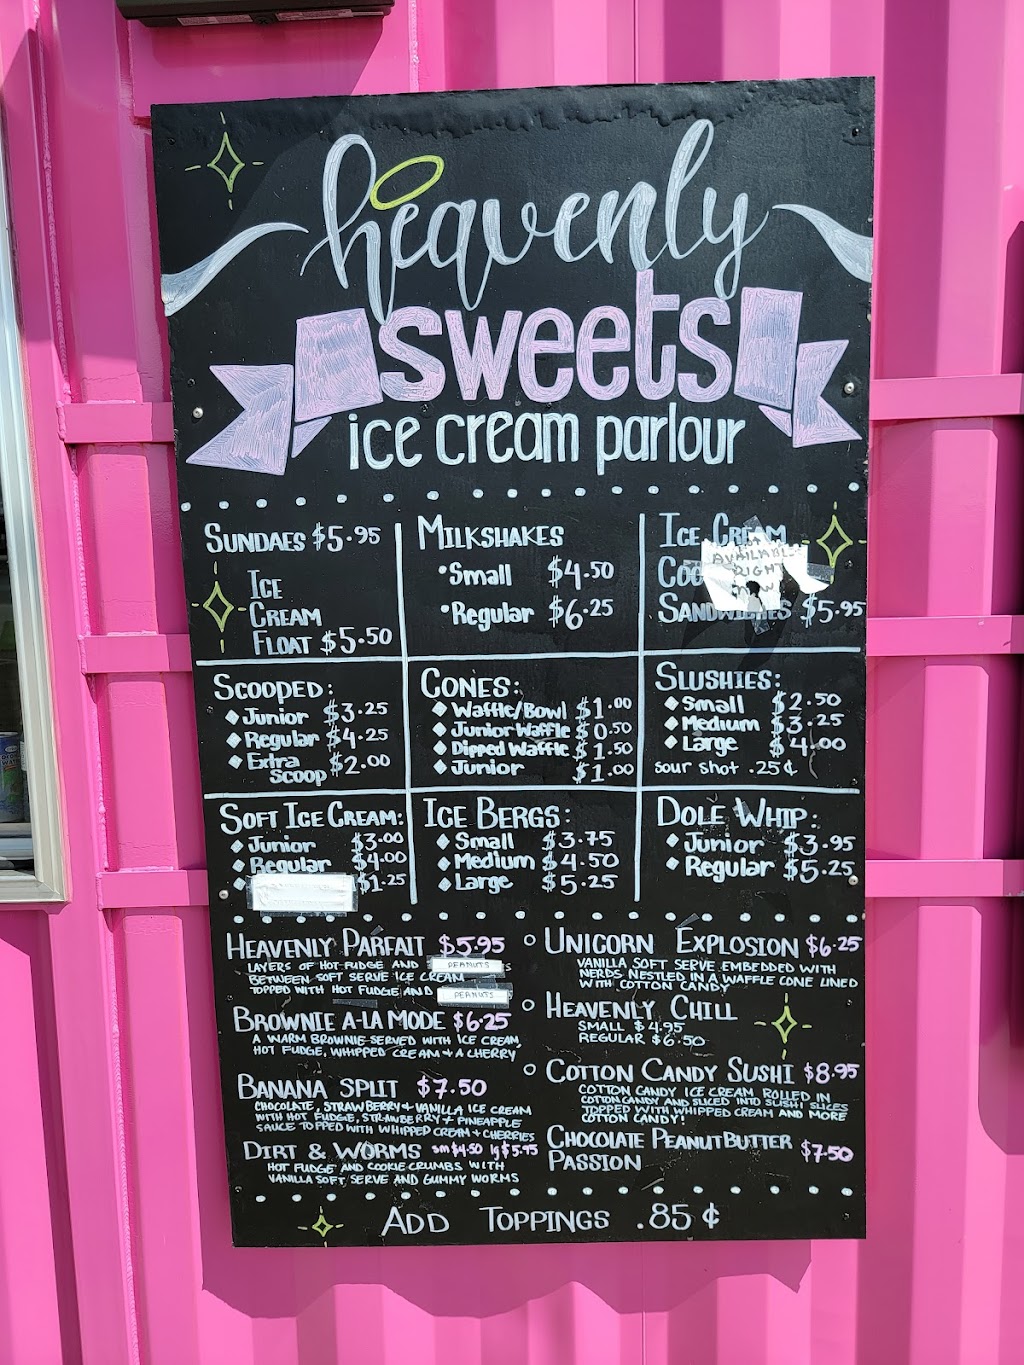 heavenly
sweets
ice cream parlour
SUNDAES $5.95
ICE
CREAM
FLOAT $5.50
MILKSHAKES
•Small $4.50
•Regular $6.25
ICE CREAM
AVAILABLE
RIGHT
SANDWICHES $5.95
SCOOPED:
◆ Junior $3.25
◆ Regular $4.25
◆ Extra
Scoop $2.00
CONES:
◆ Waffle/Bowl $1.00
◆ Junior Waffle $0.50
◆ Dipped Waffle $1.50
◆ Junior $1.00
SLUSHIES:
◆ Small $2.50
◆ Medium $3.25
◆ Large $4.00
sour shot .25¢
SOFT ICE CREAM:
◆ Junior $3.00
◆ Regular $4.00
◆ $1.25
ICE BERGS:
◆ Small $3.75
◆ Medium $4.50
◆ Large $5.25
DOLE WHIP:
◆ Junior $3.95
◆ Regular $5.25
HEAVENLY PARFAIT $5.95
LAYERS OF HOT FUDGE AND PEANUTS
BETWEEN SOFT SERVE ICE CREAM
TOPPED WITH HOT FUDGE AND PEANUTS
BROWNIE A-LA MODE $6.25
A WARM BROWNIE SERVED WITH ICE CREAM,
HOT FUDGE, WHIPPED CREAM + A CHERRY
BANANA SPLIT $7.50
CHOCOLATE, STRAWBERRY + VANILLA ICE CREAM
WITH HOT FUDGE, STRAWBERRY + PINEAPPLE
SAUCE TOPPED WITH WHIPPED CREAM + CHERRIES
DIRT & WORMS sm $4.50 lg $5.95
HOT FUDGE AND COOKIE CRUMBS WITH
VANILLA SOFT SERVE AND GUMMY WORMS
UNICORN EXPLOSION $6.25
VANILLA SOFT SERVE EMBEDDED WITH
NERDS NESTLED IN A WAFFLE CONE LINED
WITH COTTON CANDY
HEAVENLY CHILL
SMALL $4.95
REGULAR $6.50
COTTON CANDY SUSHI $8.95
COTTON CANDY ICE CREAM ROLLED IN
COTTON CANDY AND SLICED INTO SUSHI SLICES
TOPPED WITH WHIPPED CREAM AND MORE
COTTON CANDY!
CHOCOLATE PEANUT BUTTER
PASSION $7.50
ADD TOPPINGS .85¢